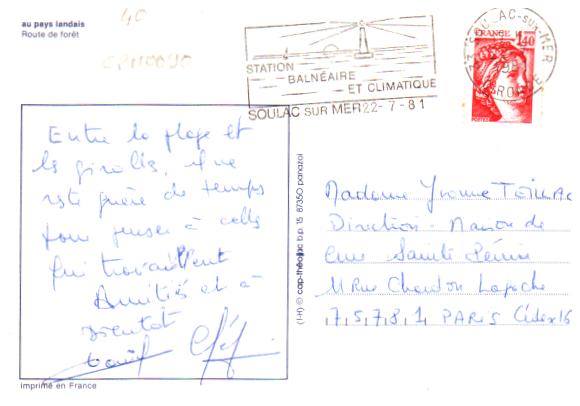 au pays landais
Route de forêt
40
STATION
BALNÉAIRE
ET CLIMATIQUE
SOULAC SUR MER 22-7-81
SOULAC-sur-MER
FRANCE
1,40
POSTES
Entre la plage et
les girolles, il ne
reste guère de temps
pour penser à celles
qui travaillent
Amitiés et à
bientôt
(I-H) © cap-théojac b.p. 15 87350 panazol
Madame Yvonne
Direction - Maison de
Cure Sainte Périne
11 Rue Chardon Lagache
75781 PARIS Cédex 16
Imprimé en France